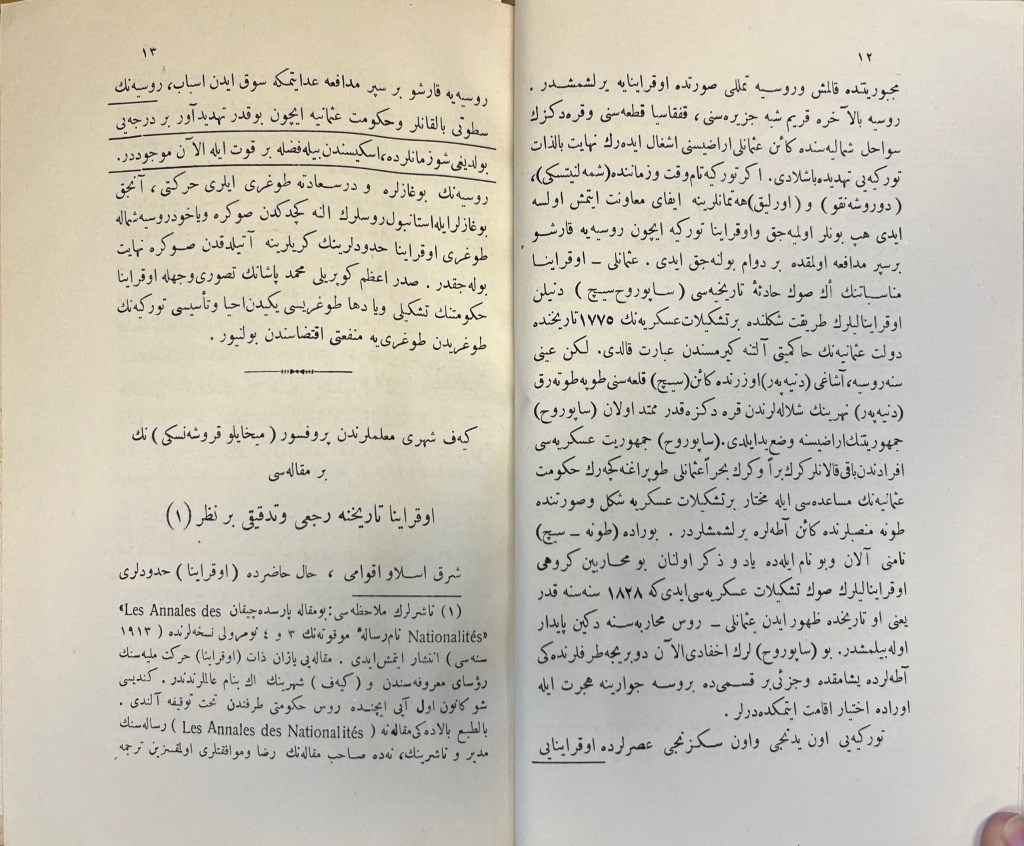 ١٢
مجبوريتنده قالمش وروسيه تمللى صورتده اوقراينايه يرلشمشدر .
روسيه بالآخره قريم شبه جزيره‌سنى ، قفقاسيا قطعه‌سنى وقره‌دكزك
سواحل شماليه‌سنده كائن عثمانلى اراضيسنى اشغال ايده‌رك نهايت بالذات
توركيه‌يى تهديده‌باشلادى. اكر توركيه تام‌وقت وزماننده (شمه‌لنيتسكى)،
(دوروشه‌نقو) و (اورليق) هه‌تمانلرينه ايفاى معاونت ايتمش اولسه
ايدى هپ بونلر اولميه‌جق واوقراينا توركيه ايچون روسيه‌يه قارشو
برسپر مدافعه اولمقده بر دوام بولنه‌جق ايدى . عثمانلى ــ اوقراينا
مناسباتنك أك صوك حادثهٔ تاريخيه‌سى ( ساپوروح سيچ ) دنيلن
اوقراينالیلرك طريقت شكلنده برتشكيلات عسكريه‌نك ١٧٧٥ تاريخنده
دولت عثمانيه‌نك حاكميتى آلتنه كيرمسندن عبارت قالدى. لكن عينى
سنه‌روسيه، آشاغى (دنيه‌پهر) اوزرنده كائن (سيچ) قلعه‌سنى طوپه طوته‌رق
(دنيه‌پهر) نهرينك شلاله‌لرندن قره دكزه‌قدر ممتد اولان (ساپوروح)
جمهوريتنك اراضيسنه وضع يدايلدى. (ساپوروح) جمهوريت عسكريه‌سى
افرادندن باقى قالانلر كرك براً وكرك بحراً عثمانلى طوپراغنه كچه‌رك حكومت
عثمانيه‌نك مساعده‌سى ايله مختار برتشكيلات عسكريه شكل وصورتنده
طونه منصبلرنده كائن آطه‌لره يرلشمشلردر . بوراده (طونه ــ سيچ)
نامنى آلان وبو نام ايله‌ده ياد و ذكر اولنان بو محاربين كروهى
اوقراينالیلرك صوك تشكيلات عسكريه‌سى ايدى‌كه ١٨٢٨ سنه‌سنه قدر
يعنى او تاريخده ظهور ايدن عثمانلى ــ روس محاربه‌سنه دكين پايدار
اوله‌بيلمشدر. بو (ساپوروح) لرك احفادى الآن دوبريجه طرفلرنده‌كى
آطه‌لرده يشامقده وجزئى بر قسمى‌ده بروسه جوارينه هجرت ايله
اوراده اختيار اقامت ايتمكده‌درلر .
توركيه‌يى اون يدنجى واون سكزنجى عصرلرده اوقراينايى
١٣
روسيه‌يه قارشو بر سپر مدافعه عدايتمكه سوق ايدن اسباب، روسيه‌نك
سطوتى بالقانلر وحكومت عثمانيه ايچون بوقدر تهديدآور بر درجه‌يى
بولديغى شو زمانلرده، اسكيسندن بيله فضله بر قوت ايله الآن موجوددر.
روسيه‌نك بوغازلره و درسعادته طوغرى ايلرى حركتى ، آنجق
بوغازلرايله استانبول روسلرك النه كچدكدن صوكره وياخود روسيه شماله
طوغرى اوقراينا حدودلرينك كريلرينه آتيلدقدن صوكره نهايت
بوله‌جقدر . صدر اعظم كوپريلى محمد پاشانك تصورى وجهله اوقراينا
حكومتنك تشكيلى ويا دها طوغريسى يكيدن احيا وتأسيسى توركيه‌نك
طوغريدن طوغرى‌يه منفعتى اقتضاسندن بولنيور .
كيه‌ف شهرى معلملرندن پروفسور (ميخايلو قروشه‌نسكى) نك
بر مقاله‌سى
اوقراينا تاريخنه رجعى وتدقيقى بر نظر (١)
شرق اسلاو اقوامى ، حال حاضرده (اوقراينا) حدودلرى
(١) ناشرلرك ملاحظه‌سى: بومقاله پارسده‌چيقان Les Annales des»
«Nationalités نام رسالهٔ موقوته‌نك ٣ و ٤ نومرولى نسخه‌لرنده ( ١٩١٣
سنه‌سى ) انتشار ايتمش ايدى . مقاله‌يى يازان ذات (اوقراينا) حركت مليه‌سنك
رؤساى معروفه‌سندن و (كيه‌ف) شهرينك اك بنام عالملرندندر . كنديسى
شو كانون اول آيى ايچنده روس حكومتى طرفندن تحت توقيفه آلندى .
بالطبع بالاده‌كى مقاله‌نه ( Les Annales des Nationalités ) رساله‌سنك
مدير و ناشرينك، نه‌ده صاحب مقاله‌نك رضا وموافقتلرى اولقسزين ترجمه